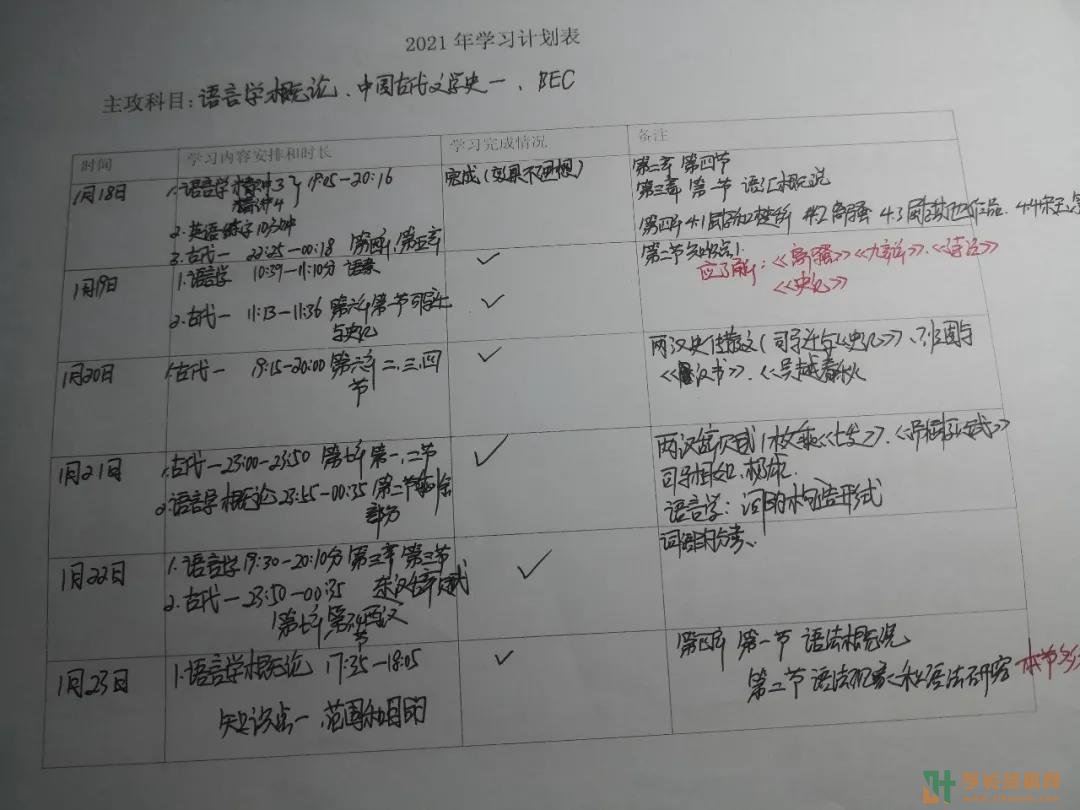 2021 年学习计划表
主攻科目:语言学概论、中国古代文学史一、BEC
时间 学习内容安排和时长 学习完成情况 备注
1月18日 1.语言学精讲3 19:05-20:16 完成(效果不理想) 第二章 第四节
精讲4 第三章 第一节 语汇概说
2.英语练字10分钟 4.2离骚
3.古代一 22:25-00:18 第四章,第五章 第二节知识点1.
1月19日 1.语言学 10:39-11:10分 语素 ✓ 应了解:《离骚》《九章》.《诗经》
《史记》
2.古代一 11:13-11:36 第六章第一节司马迁 ✓
与史记
1月20日 1.古代一 19:15-20:00 第六章二、三、四 ✓ 两汉史传散文(司马迁与《史记》)、班固与
节 《汉书》、《吴越春秋
1月21日 1.古代一 23:00-23:50 第七章 第一、二节 ✓ 两汉辞赋(枚乘《七发》).《吊屈原赋》
司马相如、扬雄.
2.语言学概论 23:55-00:35 第二节剩余 语言学:词的构造形式
部分
1月22日 1.语言学 19:30-20:10分 第三章 第三节 ✓ 词汇的分类、
2.古代一 23:50-00:35 东汉辞赋
第七章 两汉
节
1月23日 1.语言学概论 17:35-18:05 ✓ 第四章 第一节 语法概况
第二节 语法现象和语法研究 本节
知识点一 范围和目的
学长资料网